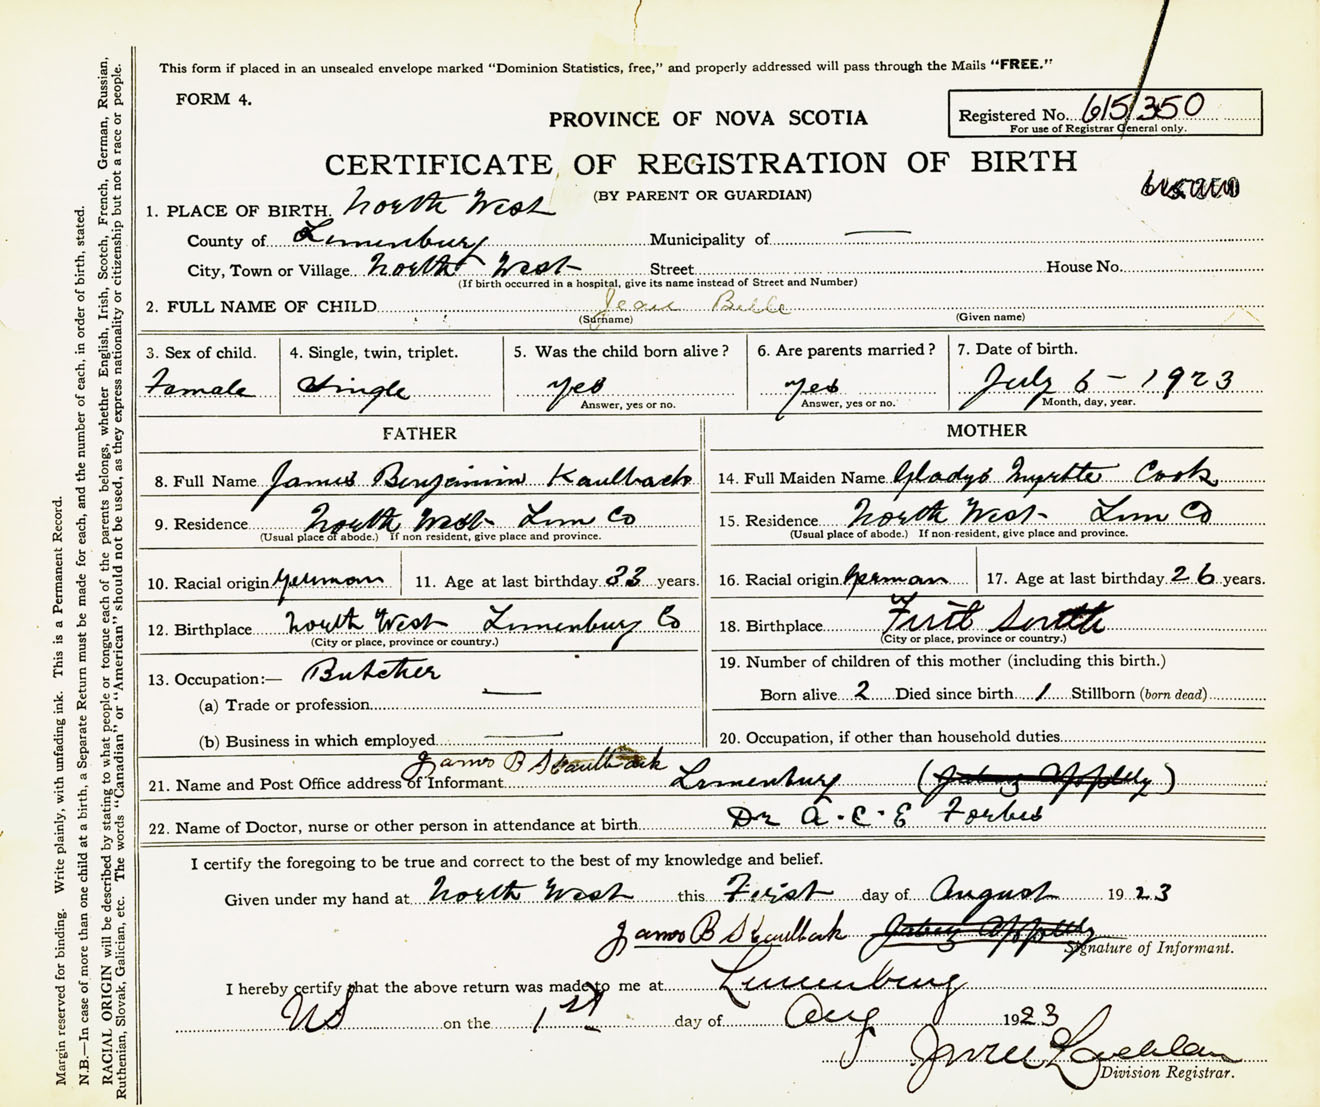 This form if placed in an unsealed envelope marked "Dominion Statistics, free," and properly addressed will pass through the Mails "FREE."
FORM 4.
PROVINCE OF NOVA SCOTIA
Registered No. 615350
For use of Registrar General only.
CERTIFICATE OF REGISTRATION OF BIRTH
(BY PARENT OR GUARDIAN)
1. PLACE OF BIRTH. North West
County of Lunenburg Municipality of —
City, Town or Village North West Street House No.
(If birth occurred in a hospital, give its name instead of Street and Number)
2. FULL NAME OF CHILD Jean Belle
(Surname) (Given name)
3. Sex of child. 4. Single, twin, triplet. 5. Was the child born alive? 6. Are parents married? 7. Date of birth.
Female Single yes yes July 6 - 1923
Answer, yes or no. Answer, yes or no. Month, day, year.
FATHER
8. Full Name James Benjamin Kaulback
9. Residence North West Lun Co
(Usual place of abode.) If non resident, give place and province.
10. Racial origin German 11. Age at last birthday 33 years.
12. Birthplace North West Lunenburg Co
(City or place, province or country.)
13. Occupation:— Butcher
(a) Trade or profession —
(b) Business in which employed —
MOTHER
14. Full Maiden Name Gladys Myrtle Cook
15. Residence North West Lun Co
(Usual place of abode.) If non-resident, give place and province.
16. Racial origin German 17. Age at last birthday 26 years.
18. Birthplace First South
(City or place, province or country.)
19. Number of children of this mother (including this birth.)
Born alive 2 Died since birth 1 Stillborn (born dead)
20. Occupation, if other than household duties
21. Name and Post Office address of Informant James B Kaulback Lunenburg
22. Name of Doctor, nurse or other person in attendance at birth Dr A. C. E Forbes
I certify the foregoing to be true and correct to the best of my knowledge and belief.
Given under my hand at North West this First day of August 1923
James B Kaulback
Signature of Informant.
I hereby certify that the above return was made to me at Lunenburg
NS on the 1st day of Aug 1923
Division Registrar.
Margin reserved for binding. Write plainly, with unfading ink. This is a Permanent Record.
N.B.—In case of more than one child at a birth, a Separate Return must be made for each, and the number of each, in order of birth, stated.
RACIAL ORIGIN will be described by stating to what people or tongue each of the parents belongs, whether English, Irish, Scotch, French, German, Russian,
Ruthenian, Slovak, Galician, etc. The words "Canadian" or "American" should not be used, as they express nationality or citizenship but not a race or people.